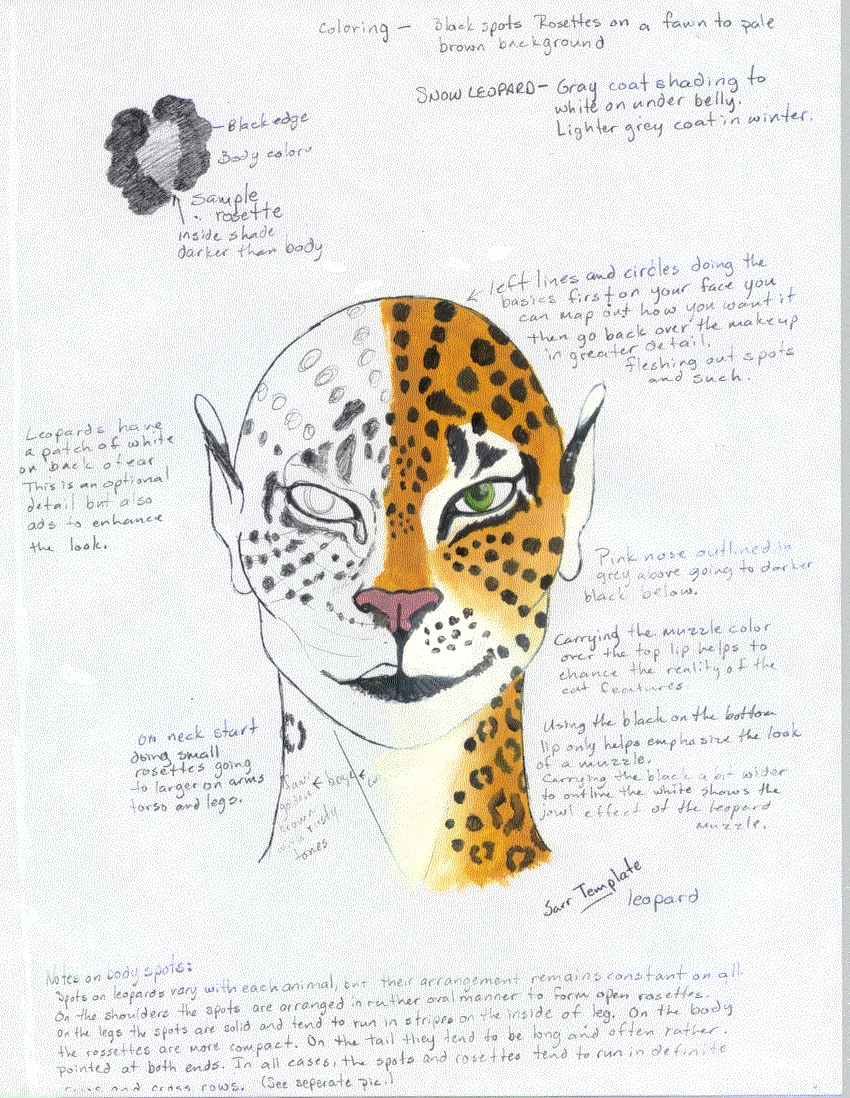 Coloring — Black spots Rosettes on a fawn to pale
brown background
SNOW LEOPARD — Gray coat shading to
white on under belly.
Lighter grey coat in winter.
Black edge
Body color
Sample
rosette
inside shade
darker than body
left lines and circles doing the
basics first on your face you
can map out how you want it
then go back over the makeup
in greater detail.
fleshing out spots
and such.
Leopards have
a patch of white
on back of ear
This is an optional
detail but also
ads to enhance
the look.
Pink nose outlined in
grey above going to darker
black below.
Carrying the muzzle color
over the top lip helps to
chance the reality of the
cat features.
Using the black on the bottom
lip only helps emphasize the look
of a muzzle.
Carrying the black a bit wider
to outline the white shows the
jowl effect of the leopard
muzzle.
on neck start
doing small
rosettes going
to larger on arms
torso and legs.
golden
brown
rusty
tones
Sarr Template
leopard
Notes on body spots:
Spots on leopards vary with each animal, but their arrangement remains constant on all.
On the shoulders the spots are arranged in rather oval manner to form open rosettes.
On the legs the spots are solid and tend to run in stripes on the inside of leg. On the body
the rossettes are more compact. On the tail they tend to be long and often rather.
pointed at both ends. In all cases, the spots and rosettes tend to run in definite
and cross rows. (See seperate pic.)